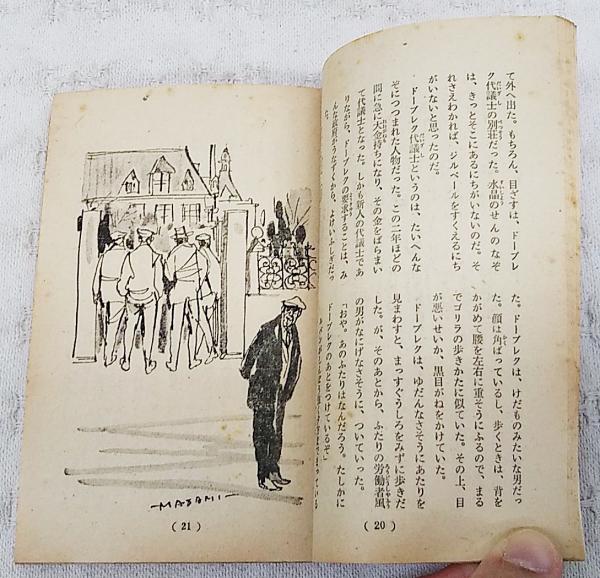 て外へ出た。もちろん、目ざすは、ドーブレ
ク代議士の別荘だった。水晶のせんのなぞ
は、きっとそこにあるにちがいないのだ。そ
れさえわかれば、ジルベールをすくえるにち
がいないと思ったのだ。
ドーブレク代議士というのは、たいへんな
ぞにつつまれた人物だった。この二年ほどの
間に急に大金持ちになり、その金をばらまい
て代議士となった。しかも新人の代議士であ
りながら、ドーブレクの要求することは、み
んな政府がうなずくから、よけいふしぎだっ
た。ドーブレクは、けだものみたいな男だっ
た。顔は角ばっているし、歩くときは、背を
かがめて腰を左右に重そうにふるので、まる
でゴリラの歩きかたに似ていた。その上、目
が悪いせいか、黒目がねをかけていた。
ドーブレクは、ゆだんなさそうにあたりを
見まわすと、まっすぐうしろをみずに歩きだ
した。が、そのあとから、ふたりの労働者風
の男がなにげなさそうに、ついていった。
「おや。あのふたりはなんだろう。たしかに
ドーブレクのあとをつけているぞ」
(20)
MASAMI
(21)